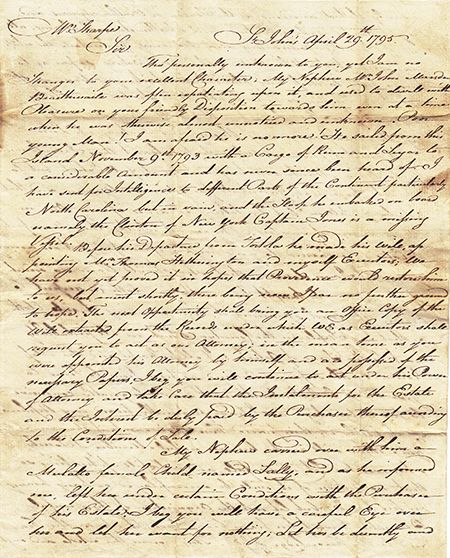 Mr. Tharpe
St. John's April 29th. 1795
Sir
Tho' personally unknown to you, yet I am no
Stranger to your excellent Character; My Nephew Mr. John
Braithwaite was often expatiating upon it and used to dwell with
Pleasure on your friendly Disposition towards him at a time
when he was otherwise almost and unknown. Poor
young Man! I am afraid he is no more! He sailed from this
Island November 9th 1793 with a Cargo of Rum and Sugar to
a considerable amount and has never since been heard of. I
have sent for Intelligence to different Parts of the Continent particularly
North Carolina but in vain, and the Sloop he embarked on board
namely the Clinton of New York Captain Jones is a missing
Vessel. his Departure from he made his Will ap
pointing Mr. Thomas Hetherington and myself Executors, We
have not yet proved it in hopes that Providence would restore him
to us, but must shortly, there being now I fear no further ground
to hope. The next Opportunity shall bring you an Office Copy of the
Will extracted from the Records under which We as Executors shall
request you to act as our Attorney; in the mean time as you
were appointed his Attorney by himself and are possessed of the
necessary Papers I beg you will continue to act under his Power
of Attorney and take Care that the Instalments for the Estate
and the Interest be duly paid by the Purchaser thereof according
to the Conditions of Sale.
My Nephew carried over with him a
Mulatto female Child, named Sally, and as he informed
me, left her under certain Conditions with the Purchaser
of his Estate; I beg you will have a careful Eye over
her and let her want for nothing; Let her be decently and